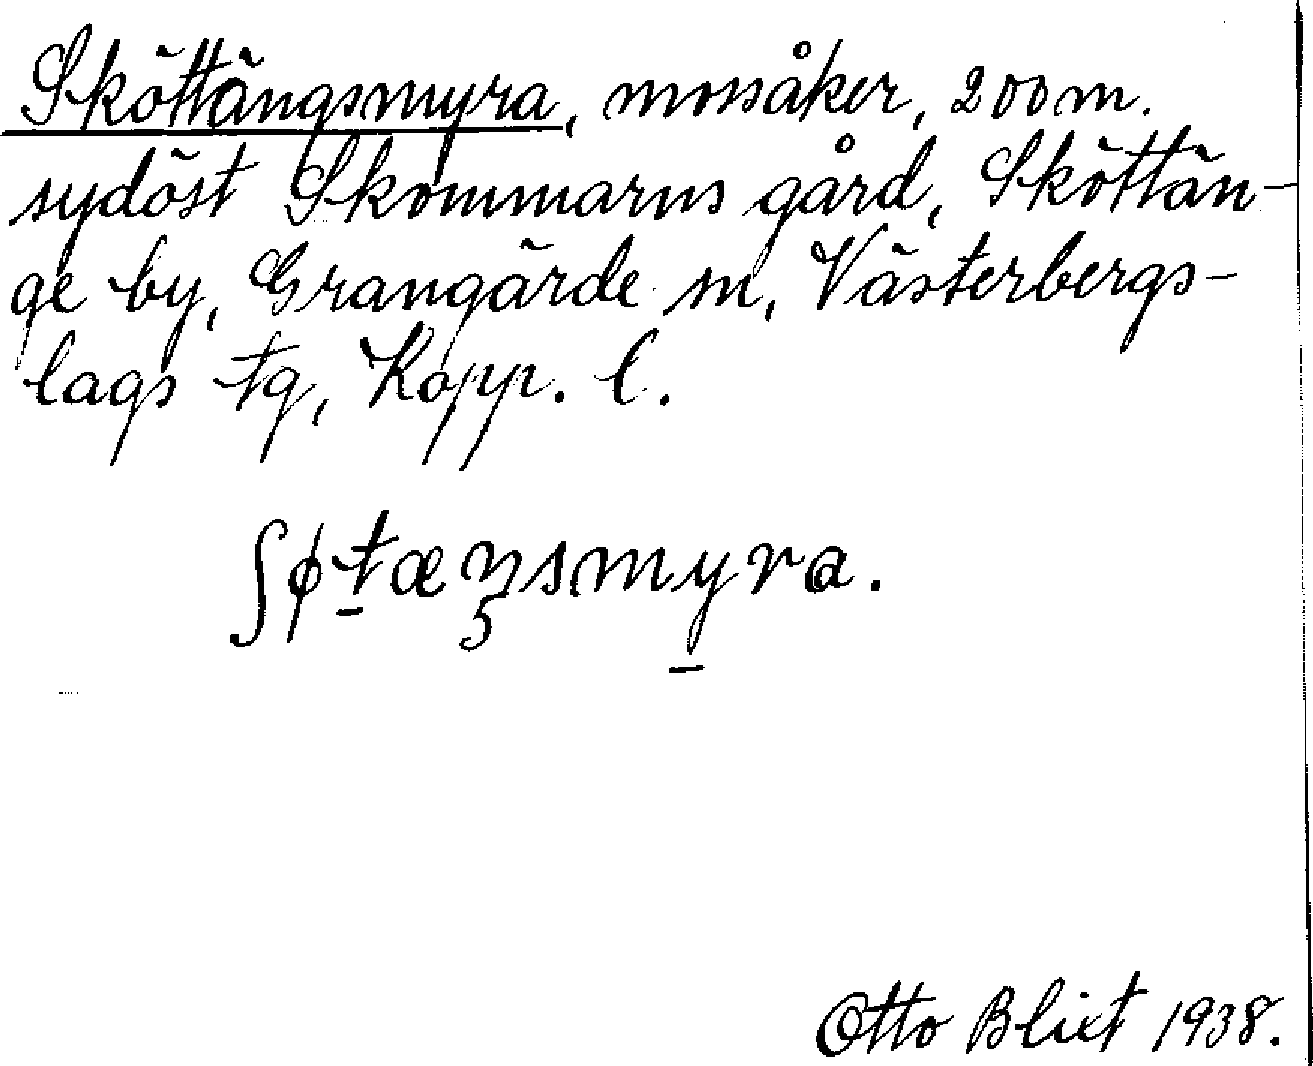 Sköttängsmyra, mossåker, 200 m.
sydöst Skommarns gård, Sköttän-
ge by, Grangärde sn, Västerbergs-
lags tg, Kopp. l.
ʃɸt̠æŋsmy̠ra.
Otto Blixt 1938.